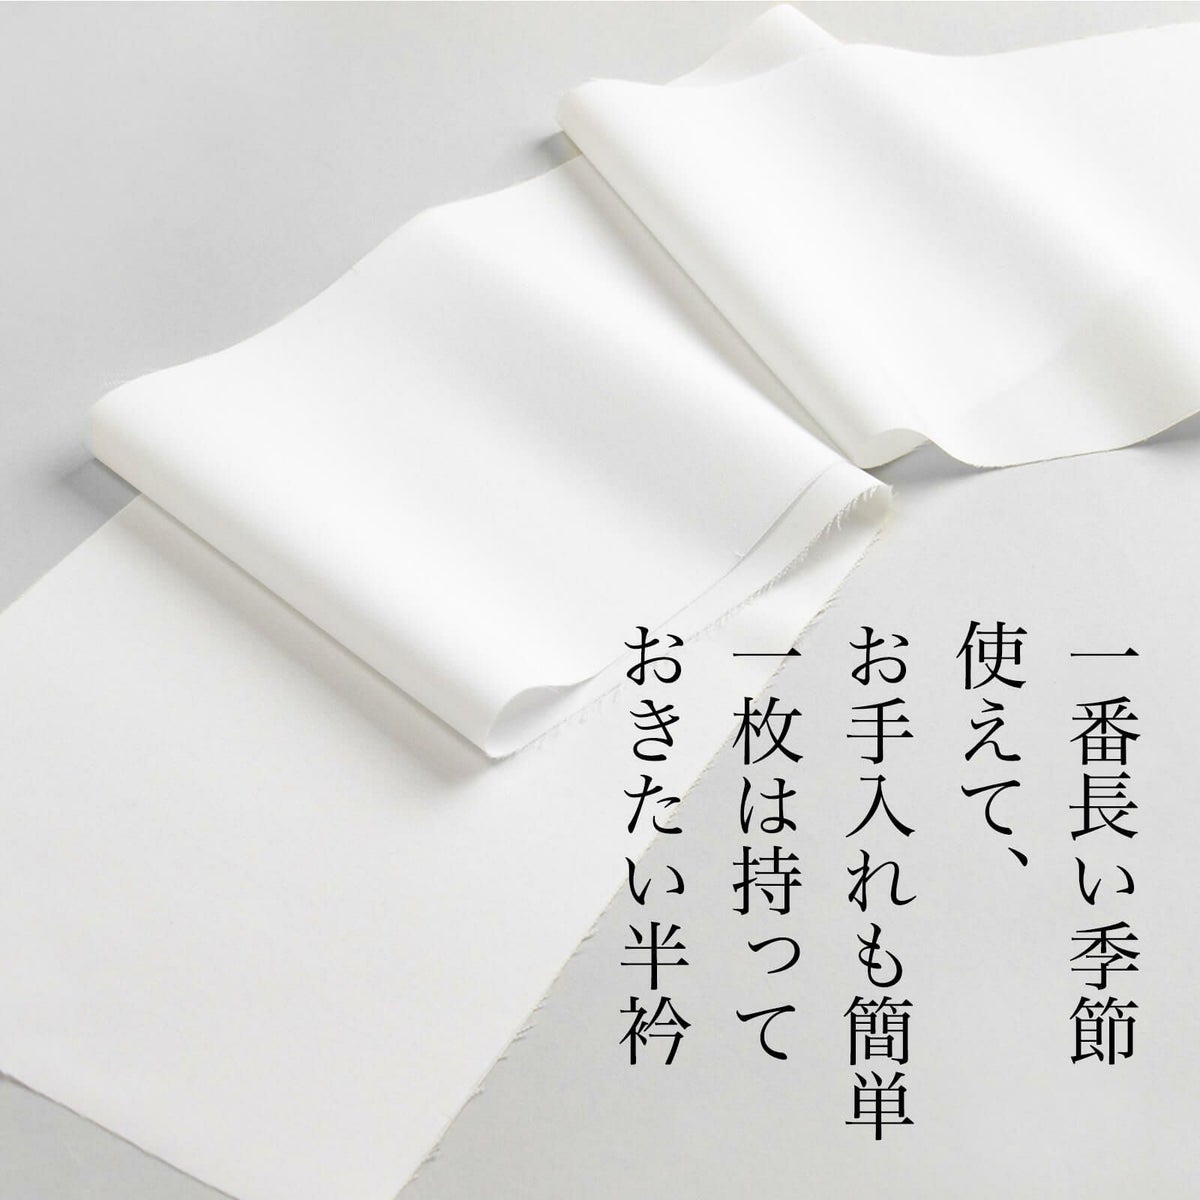 一番長い季節
使えて、
お手入れも簡単
一枚は持って
おきたい半衿